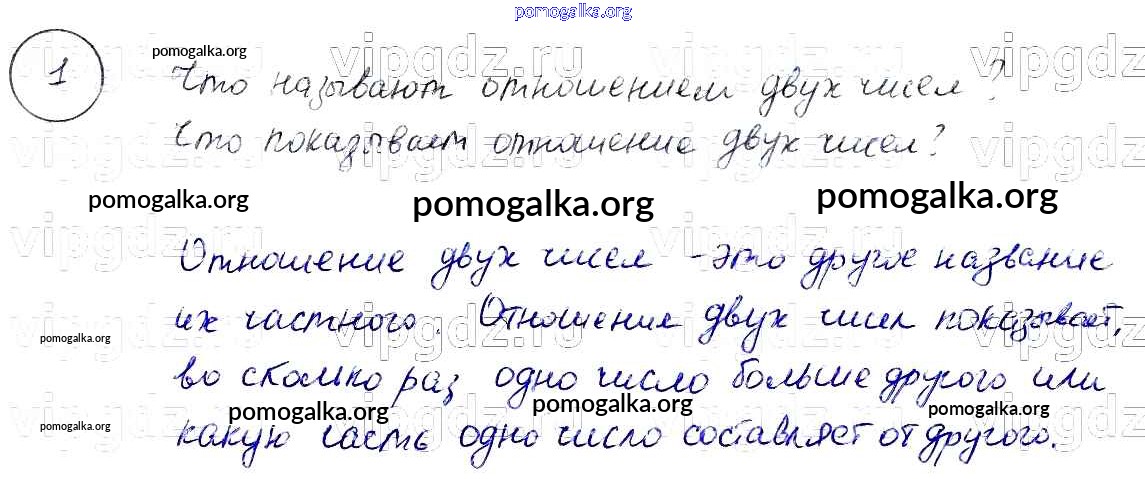 pomogalka.org
1 pomogalka.org vipgdz.ru vipgdz.ru vipgdz
Что называют отношением двух чисел?
Что показывает отношение двух чисел?
vipgdz.ru vipgdz.ru vipgdz.ru vipgdz
pomogalka.org pomogalka.org pomogalka.org
vipgdz.ru vipgdz.ru vipgdz.ru vipgdz
Отношение двух чисел - это другое название
их частного. Отношение двух чисел показывает,
pomogalka.org vipgdz.ru vipgdz.ru vipgdz.ru vipgdz
во сколько раз одно число больше другого или
pomogalka.org pomogalka.org pomogalka.org
pomogalka.org vipgdz.ru vipgdz.ru vipgdz.ru vipgdz
какую часть одно число составляет от другого.